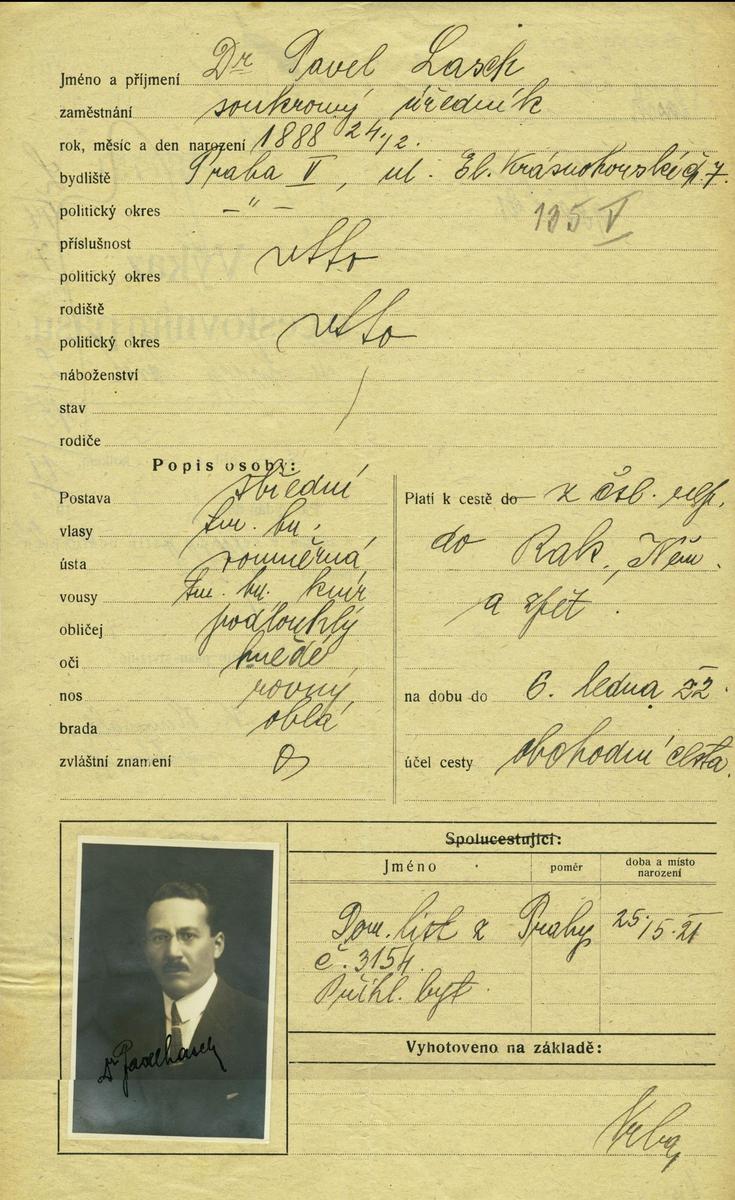 Jméno a příjmení Dr Pavel Lasch
zaměstnání soukromý úředník
rok, měsíc a den narození 1888 24/2.
bydliště Praha V, ul. El. Krásnohorské č. 7.
politický okres – " –
135 V
příslušnost
politický okres
rodiště
politický okres
náboženství
stav
rodiče
Popis osoby:
Postava střední
vlasy tm. hn.
ústa rouměrná
vousy tm. hn. knír
obličej podlouhlý
oči hnědé
nos rovný
brada oblá
zvláštní znamení 0
Platí k cestě do z čsl. rep.
do Rak., Něm.
a zpět.
na dobu do 6. ledna 22.
účel cesty obchodní cesta.
Spolucestující:
Jméno poměr doba a místo narození
Dom. list z Prahy 25./5.21
č. 3154.
Přihl. byt.
Vyhotoveno na základě:
Dr Pavel Lasch